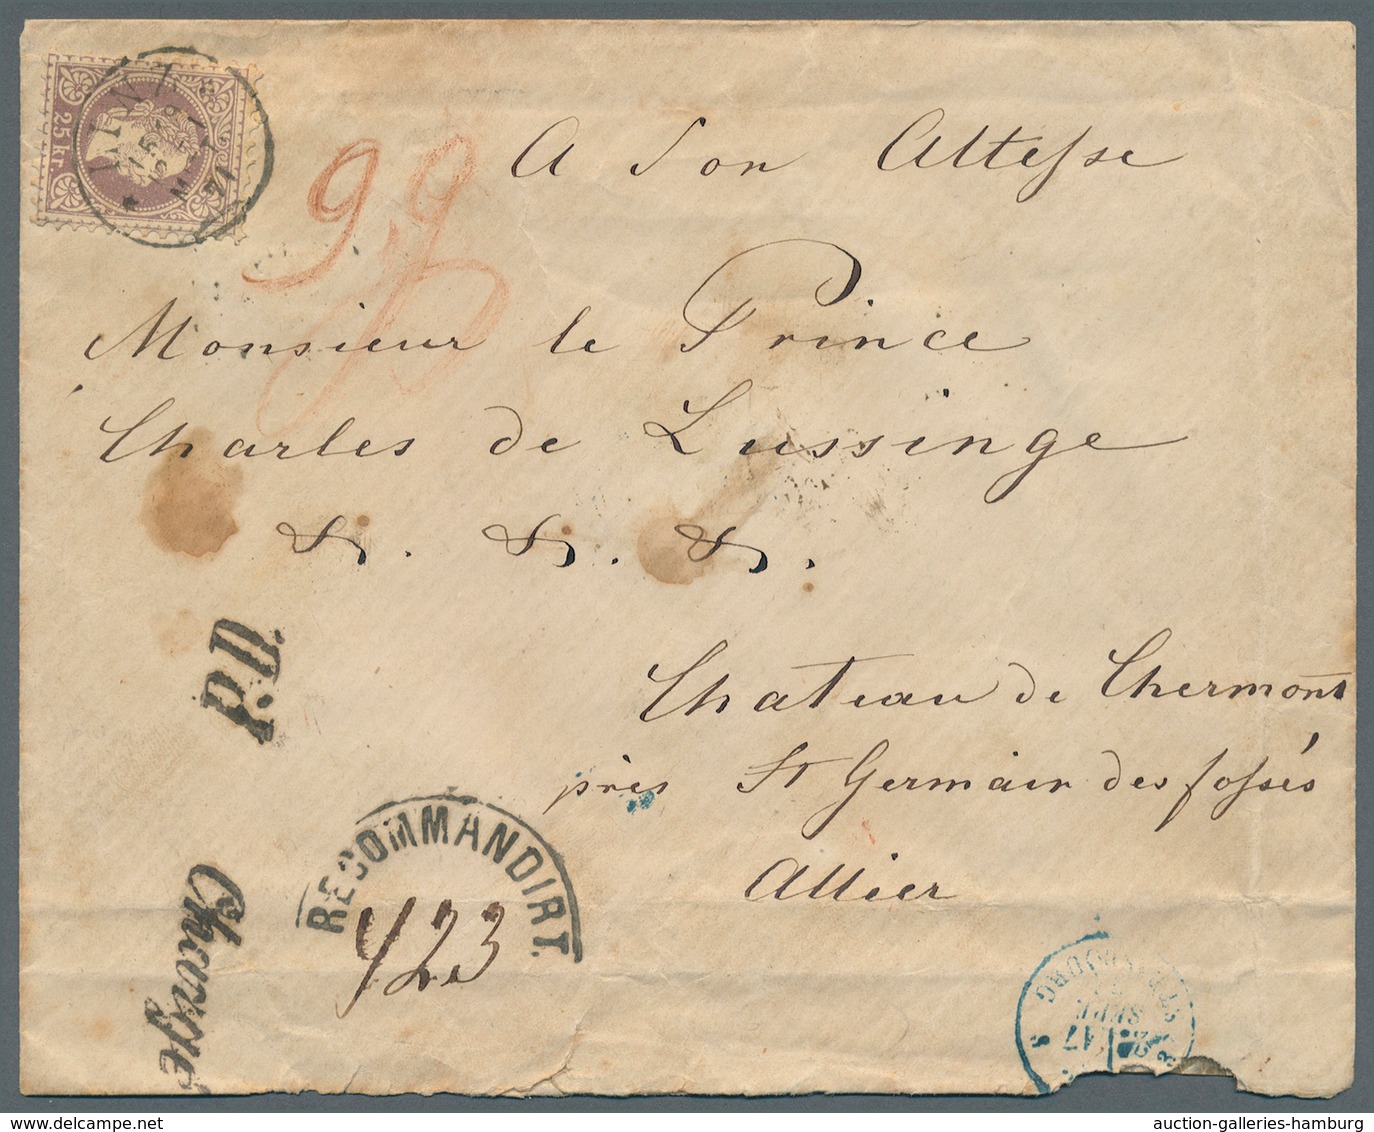 25 kr.
LINZ
71
99
A Son Altesse
Monsieur le Prince
Charles de Lussinge
Chateau de Chermont
près St Germain des fossés
Allier
P.D.
RECOMMANDIRT.
423
Chargé
SEPT
auction-galleries-hamburg